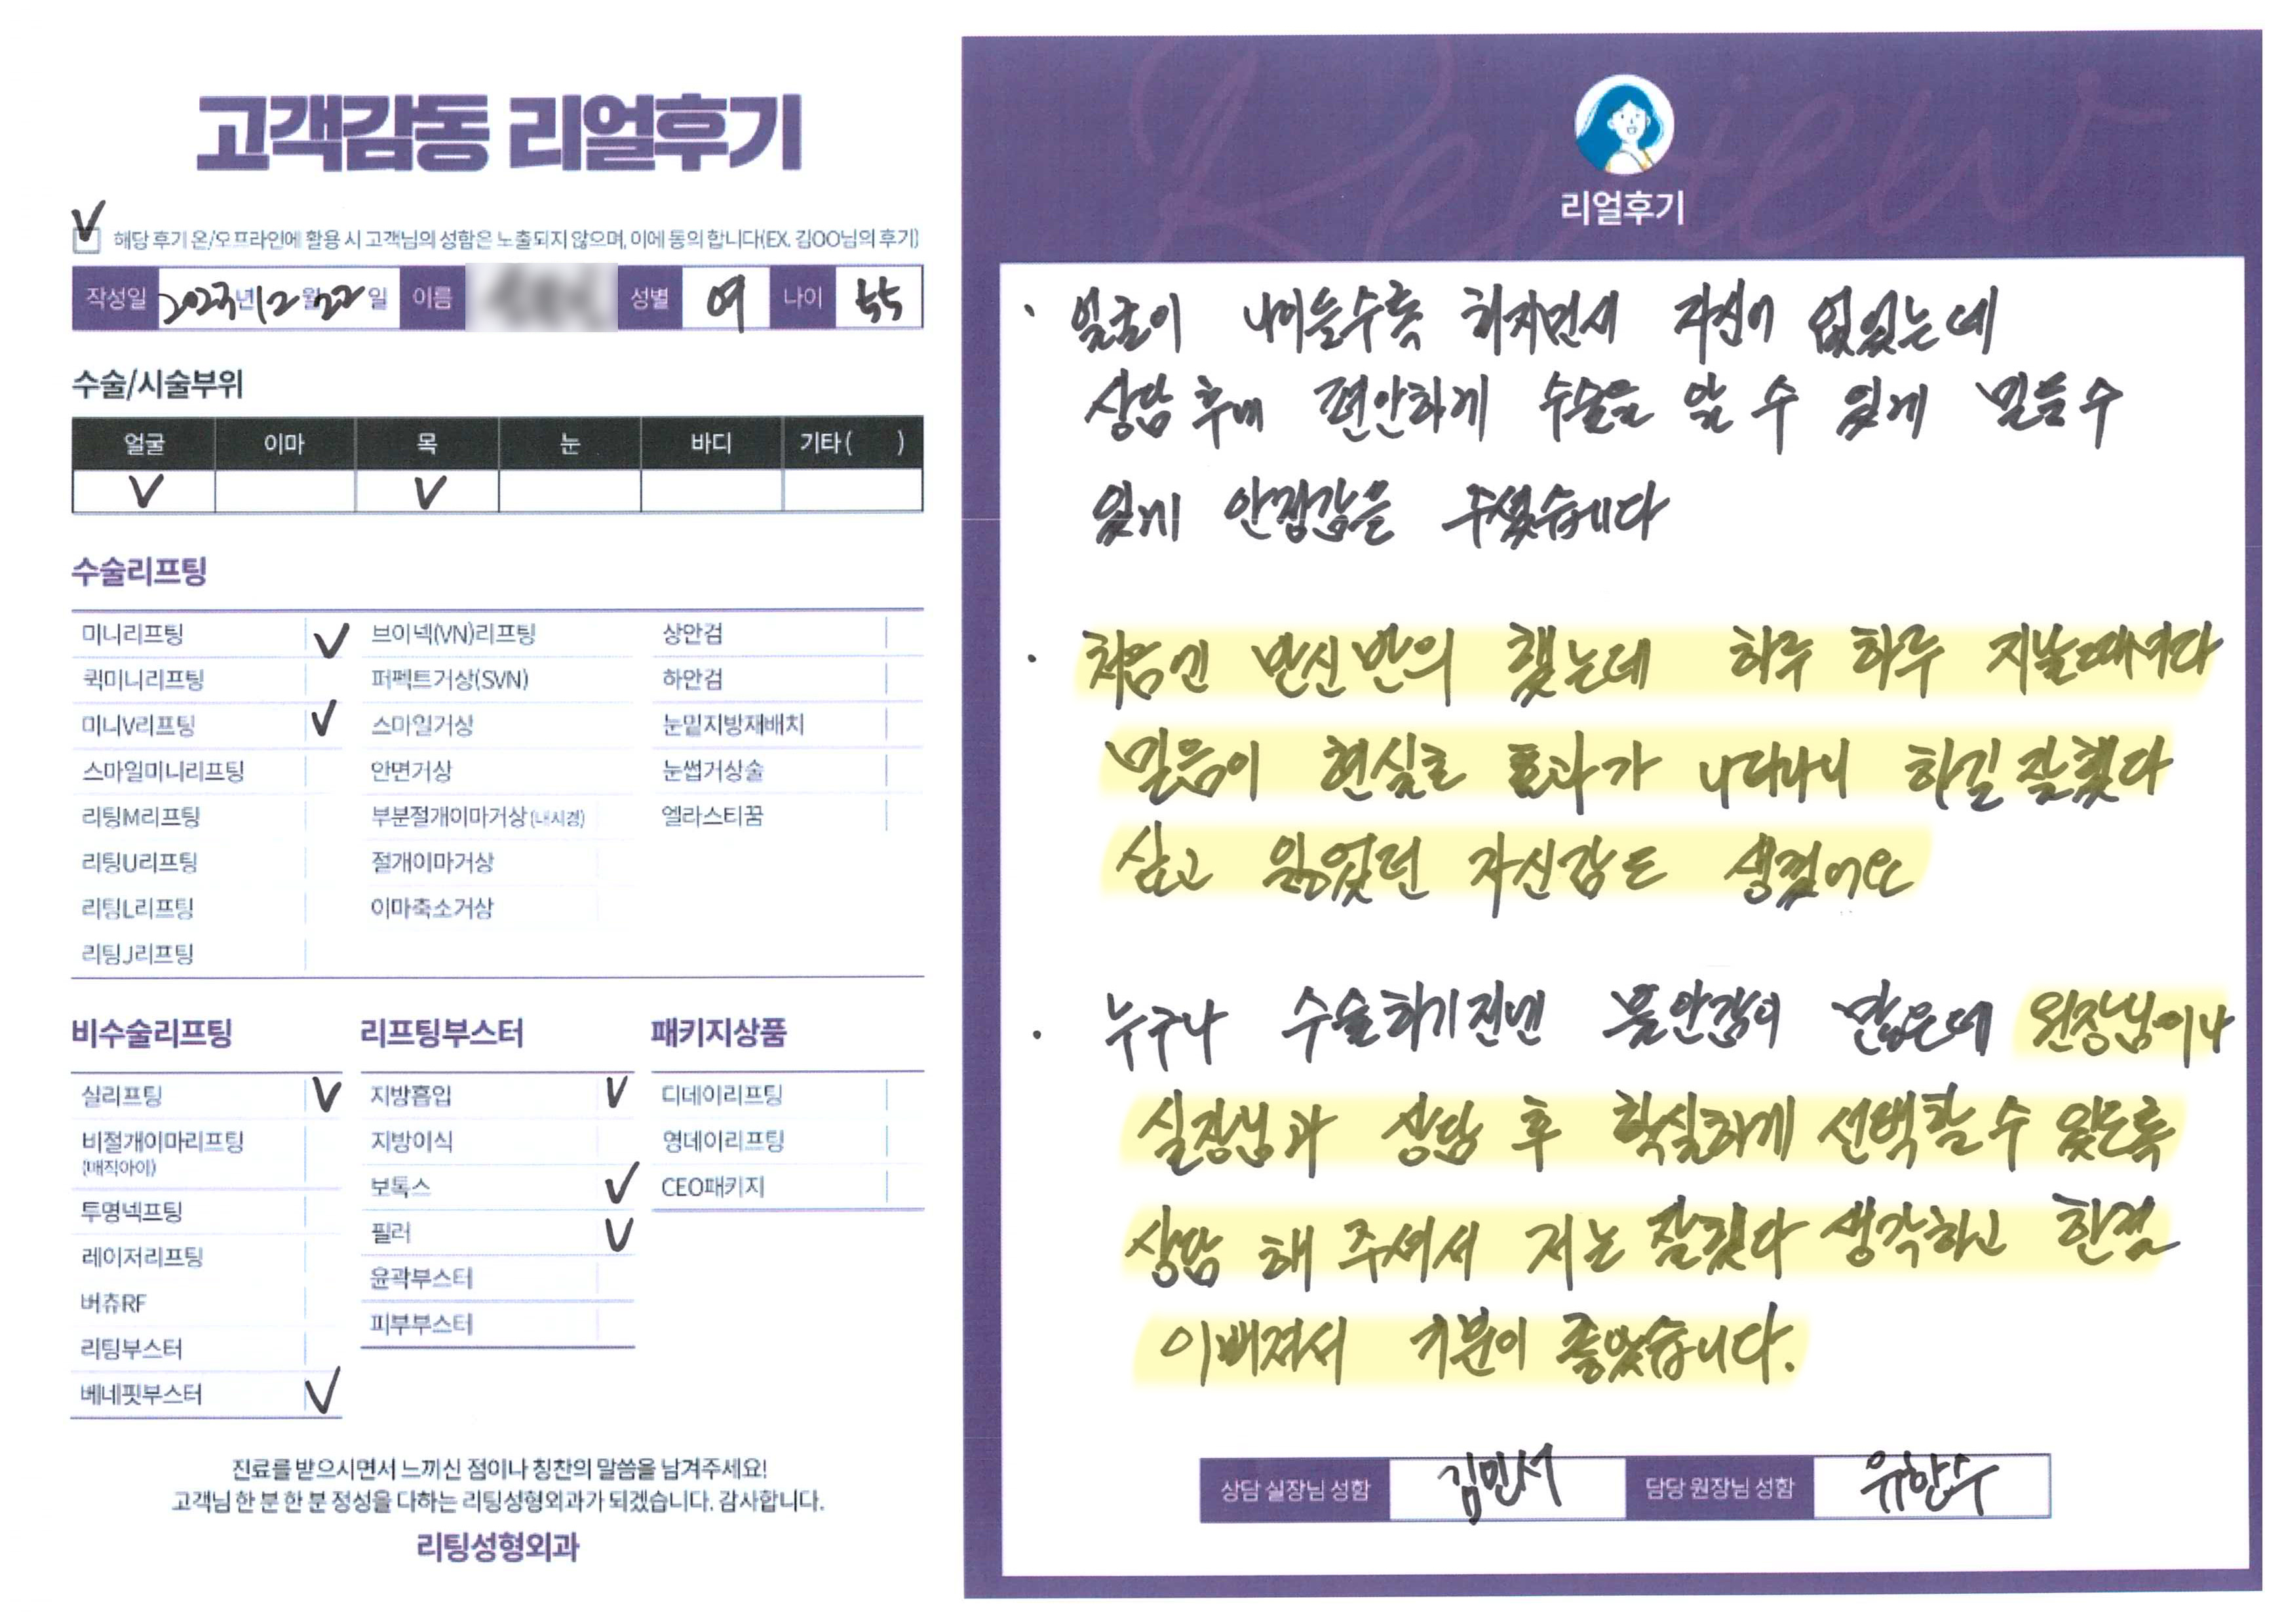 고객감동 리얼후기
해당 후기 온/오프라인에 활용 시 고객님의 성함은 노출되지 않으며, 이에 동의 합니다(EX. 김OO님의 후기)
작성일 2023년 12월 22일 이름 성별 여 나이 55
수술/시술부위
얼굴 이마 목 눈 바디 기타 ( )
수술리프팅
미니리프팅 브이넥(VN)리프팅 상안검
퀵미니리프팅 퍼펙트거상(SVN) 하안검
미니V리프팅 스마일거상 눈밑지방재배치
스마일미니리프팅 안면거상 눈썹거상술
리팅M리프팅 부분절개이마거상(내시경) 엘라스티꿈
리팅U리프팅 절개이마거상
리팅L리프팅 이마축소거상
리팅J리프팅
비수술리프팅 리프팅부스터 패키지상품
실리프팅 지방흡입 디데이리프팅
비절개이마리프팅 지방이식 영데이리프팅
(매직아이)
보톡스 CEO패키지
투명넥프팅 필러
레이저리프팅 윤곽부스터
버츄RF 피부부스터
리팅부스터
베네핏부스터
진료를 받으시면서 느끼신 점이나 칭찬의 말씀을 남겨주세요!
고객님 한 분 한 분 정성을 다하는 리팅성형외과가 되겠습니다. 감사합니다.
리팅성형외과
Review
리얼후기
· 얼굴이 나이들수록 쳐지면서 자신이 없었는데
상담 후에 편안하게 수술을 할 수 있게 믿을 수
있게 안정감을 주셨습니다
· 처음엔 반신반의 했는데 하루 하루 지날때마다
믿음이 현실로 효과가 나타나니 하길 잘했다
싶고 잃었던 자신감도 생겼어요
· 누구나 수술하기전엔 불안감이 많은데 원장님이나
실장님과 상담 후 확실하게 선택할 수 있도록
상담 해 주셔서 저는 잘했다 생각하고 한결
이뻐져서 기분이 좋았습니다.
상담 실장님 성함 김민서 담당 원장님 성함 유한수